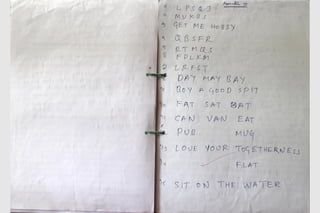 LPSQJ
MUKBS
GET ME HOBBY
QBSFR
RTMQS
FDLKM
LRFST
DAY MAY BAY
BOY A GOOD SPIT
FAT SAT BAT
CAN VAN EAT
PUB MUG
LOVE YOUR TOGETHERNESS
FLAT
SIT ON THE WATER